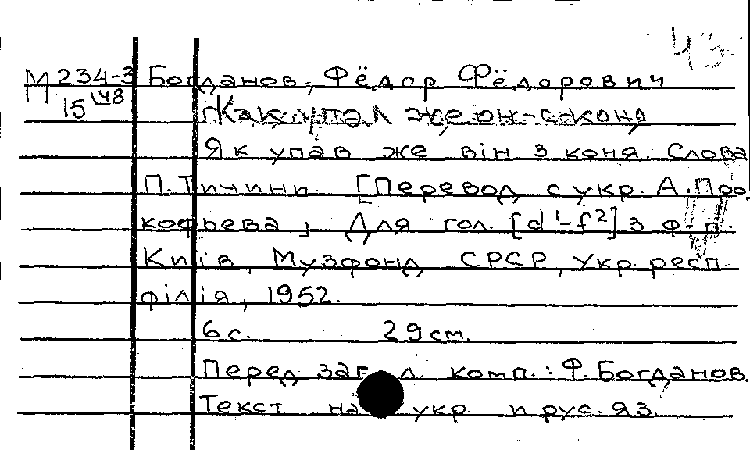 43
М 234-3 Богданов, Фёдор Фёдорович
15 148
[Как упал же он с коня]
Як упав же він з коня. Слова
П. Тичини. [Перевод с укр. А. Про-
кофьева]. Для гол. [d¹-f²] з ф-п.
Київ, Музфонд СРСР, Укр. респ.
філія, 1952.
6 с. 29 см.
Перед загол. комп.: Ф. Богданов.
Текст на укр. и рус. яз.